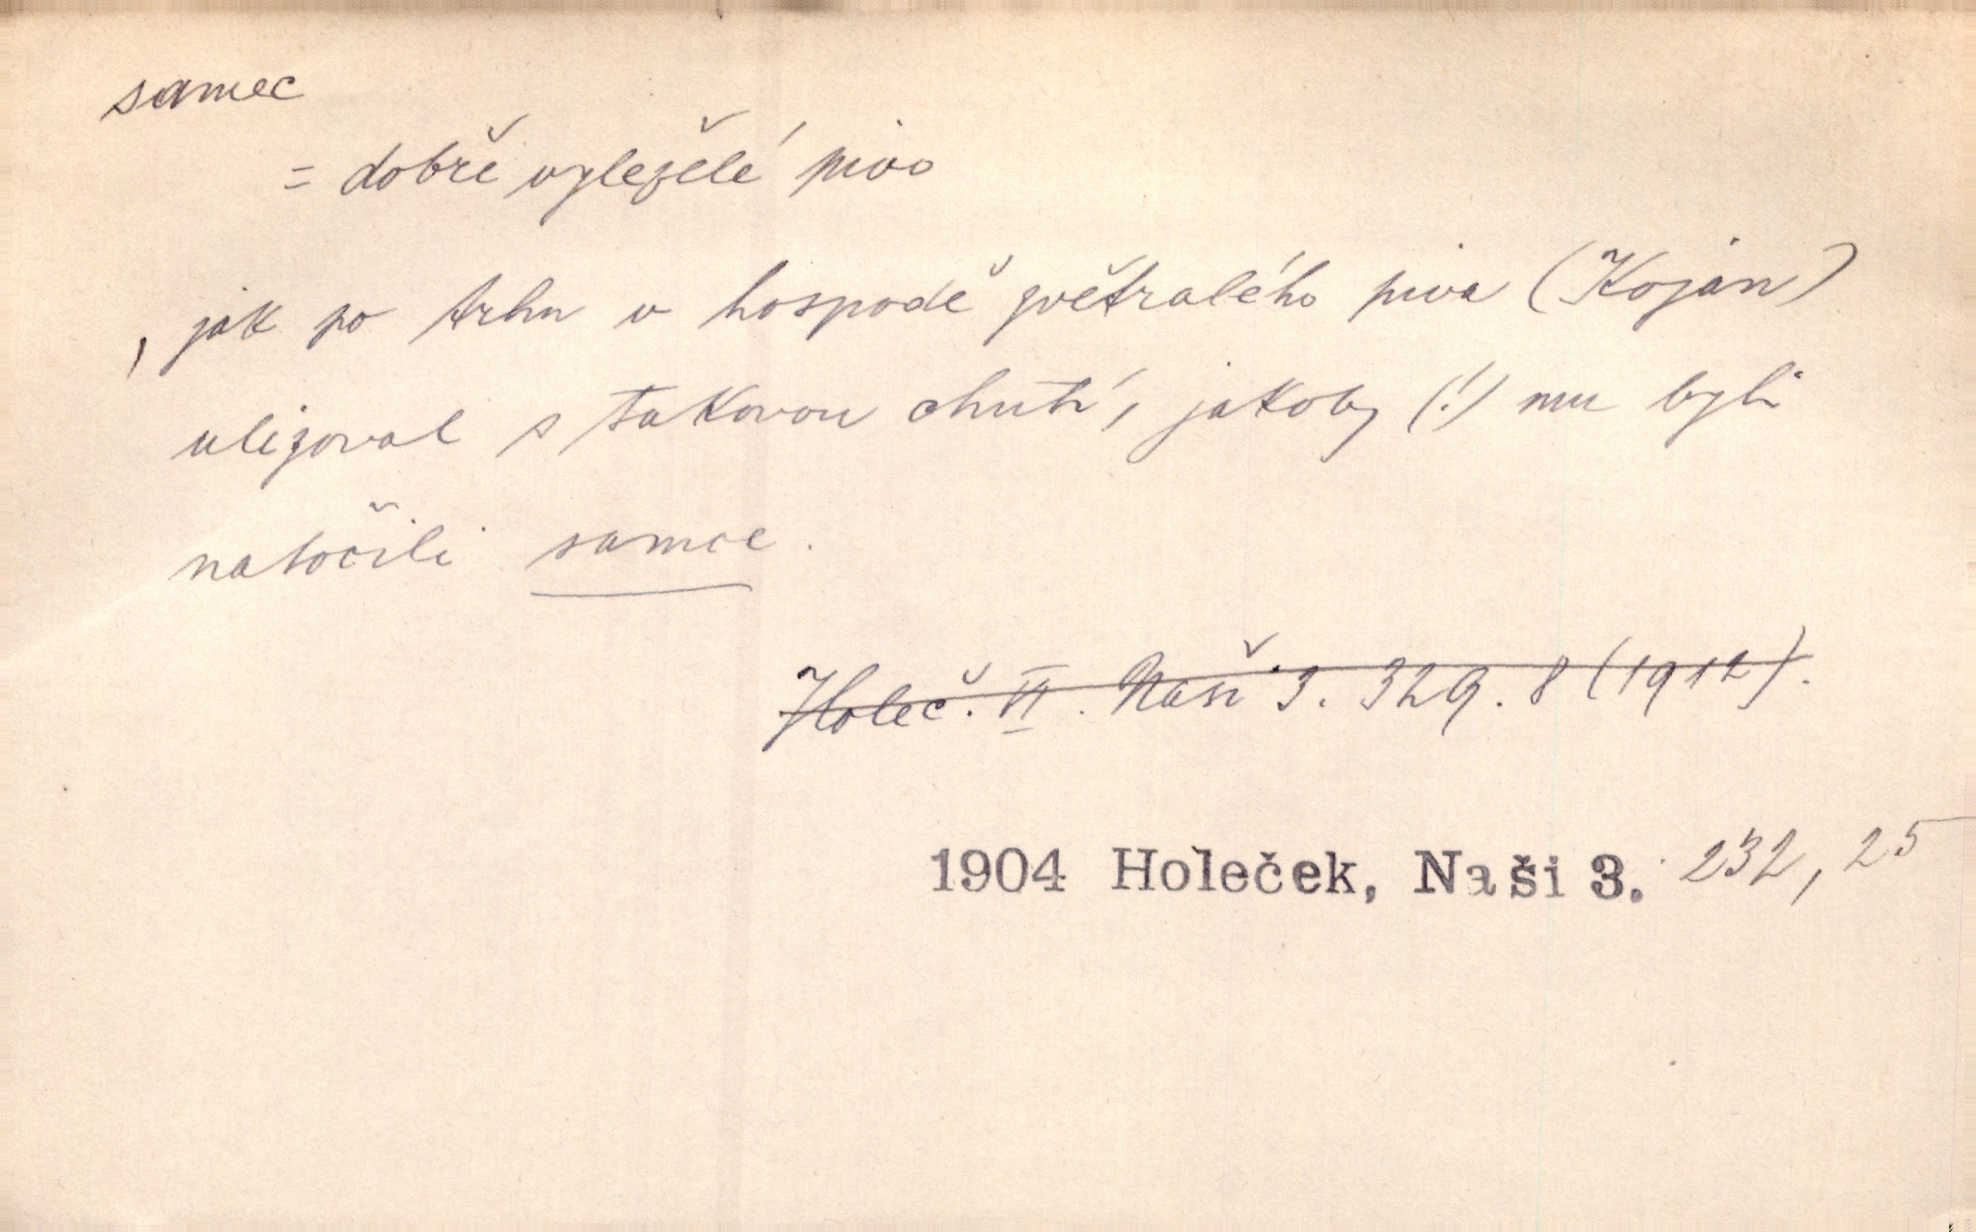 samec
= dobře vyležělé pivo
, jak po trhu v hospodě zvětralého piva (Koján)
ulizoval s takovou chutí, jakoby (!) mu byli
natočili samce.
Holeč. VI. Naši 3. 329. 8 (1912).
1904 Holeček, Naši 3. 232, 25